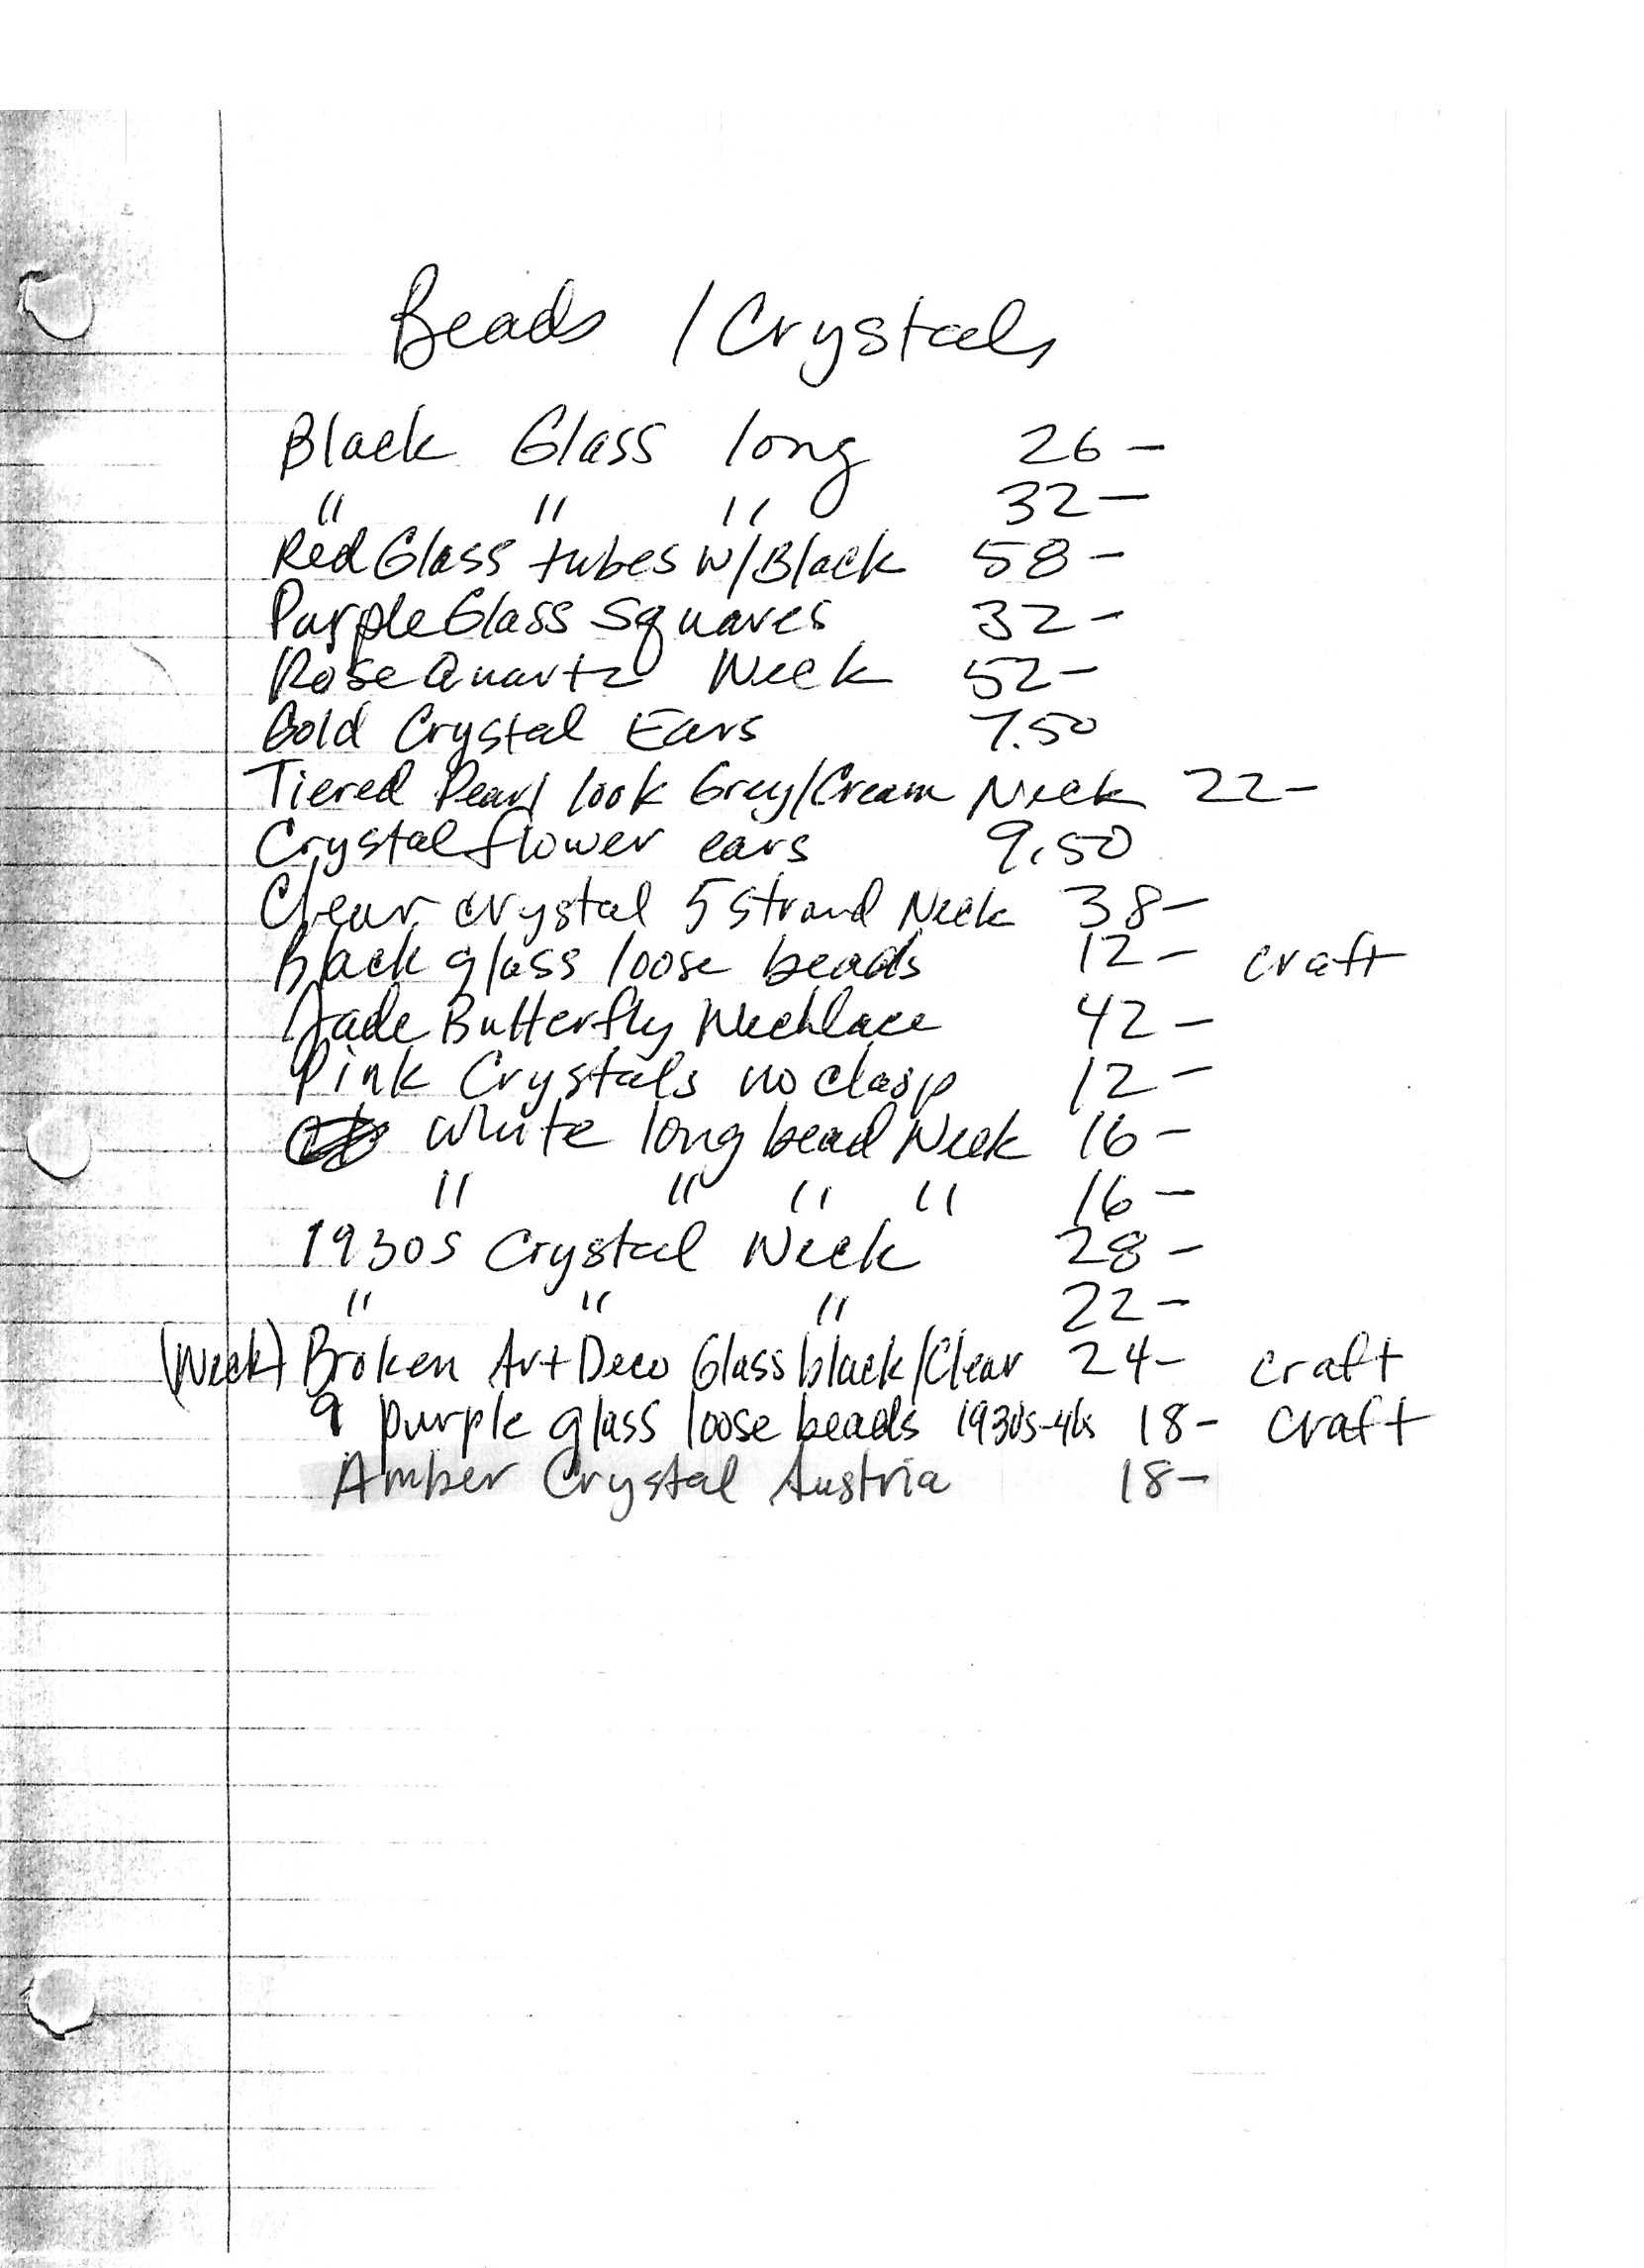 Beads / Crystals
Black Glass long 26 -
" " " 32 -
Red Glass tubes w/Black 58 -
Purple Glass Squares 32 -
Rose Quartz Neck 52 -
Gold Crystal Ears 7.50
Tiered Pearl look Grey/Cream Neck 22 -
Crystal flower ears 9.50
Clear crystal 5 strand Neck 38 -
Black glass loose beads 12 - craft
Jade Butterfly Necklace 42 -
Pink Crystals no clasp 12 -
white long bead Neck 16 -
" " " " 16 -
1930s Crystal Neck 28 -
" " " 22 -
(Neck) Broken Art Deco Glass black/Clear 24 - craft
9 purple glass loose beads 1930s-40s 18 - craft
Amber Crystal Austria 18 -